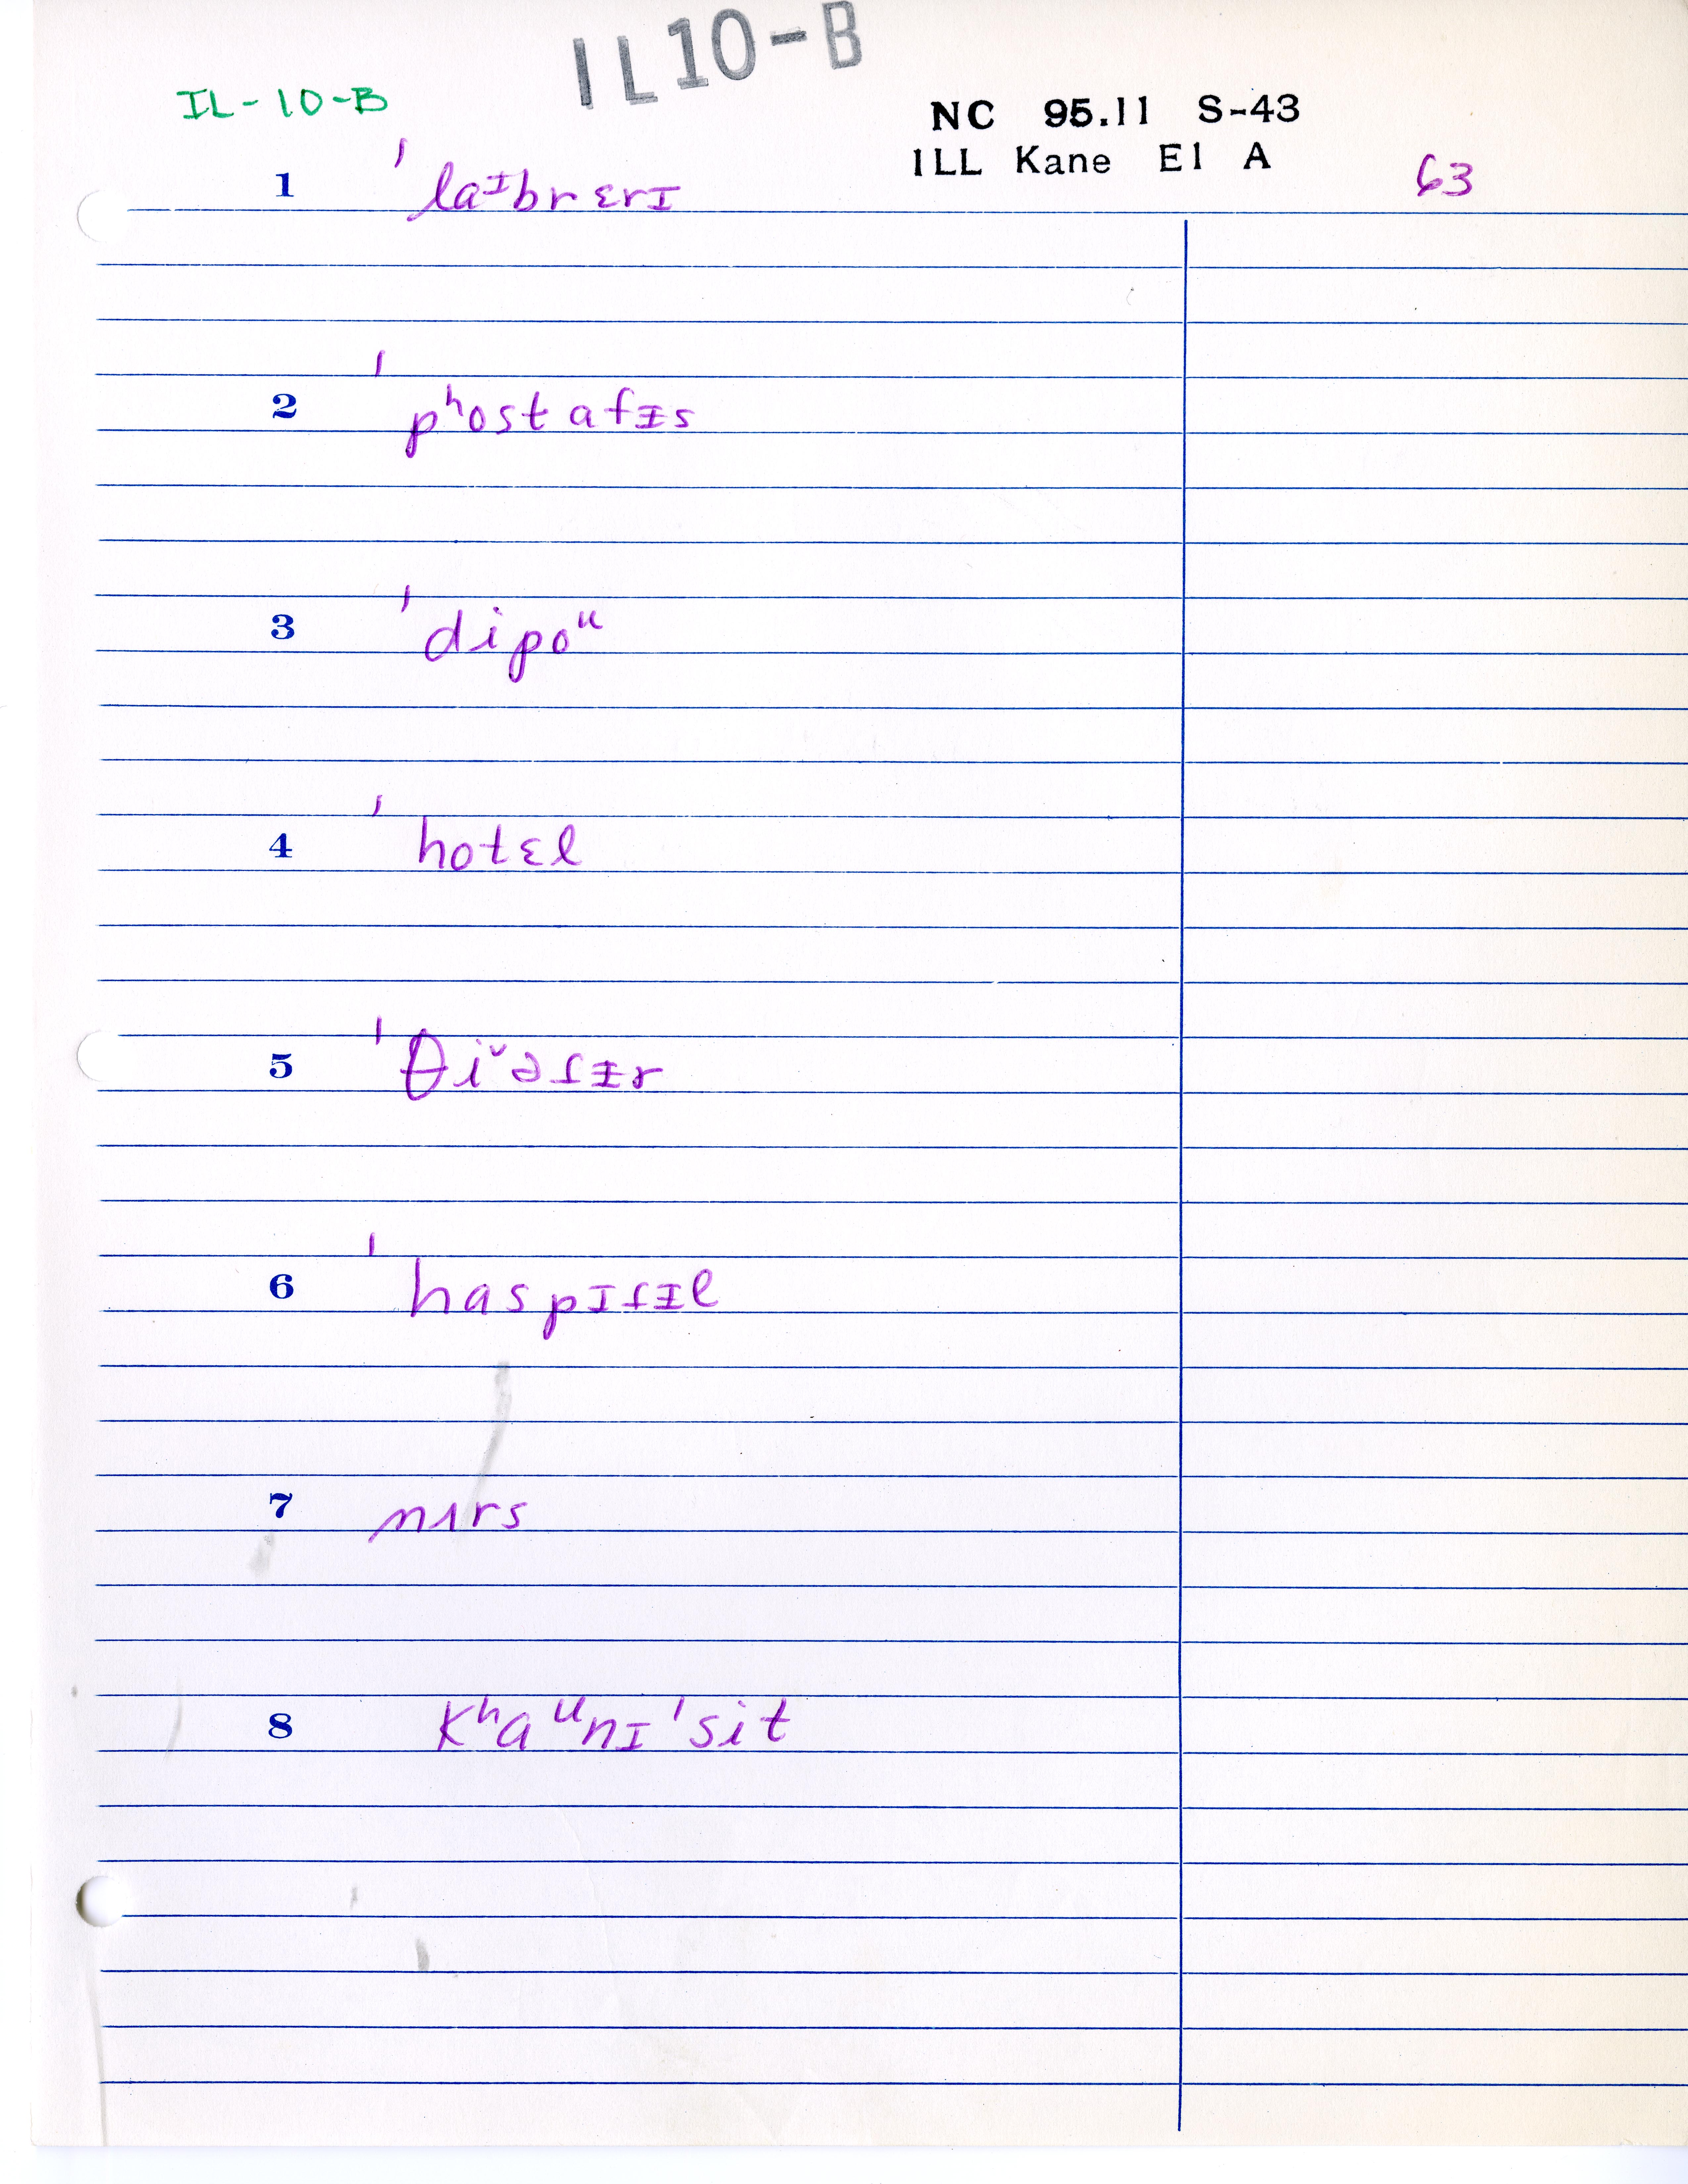 IL10-B
IL-10-B
NC 95.11 S-43
ILL Kane El A 63
1 ˈlaᶦbrɛrɪ
2 ˈpʰostafɨs
3 ˈdipoᵘ
4 ˈhotɛl
5 ˈθiˇəɾɨr
6 ˈhaspɪɾɨl
7 nɜrs
8 kʰaᵘnɪˈsit